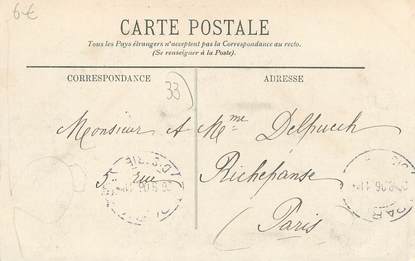 6€
CARTE POSTALE
Tous les Pays étrangers n'acceptent pas la Correspondance au recto.
(Se renseigner à la Poste).
CORRESPONDANCE
ADRESSE
33
Monsieur & Mme Delpuech
5 rue Richepanse
(Paris